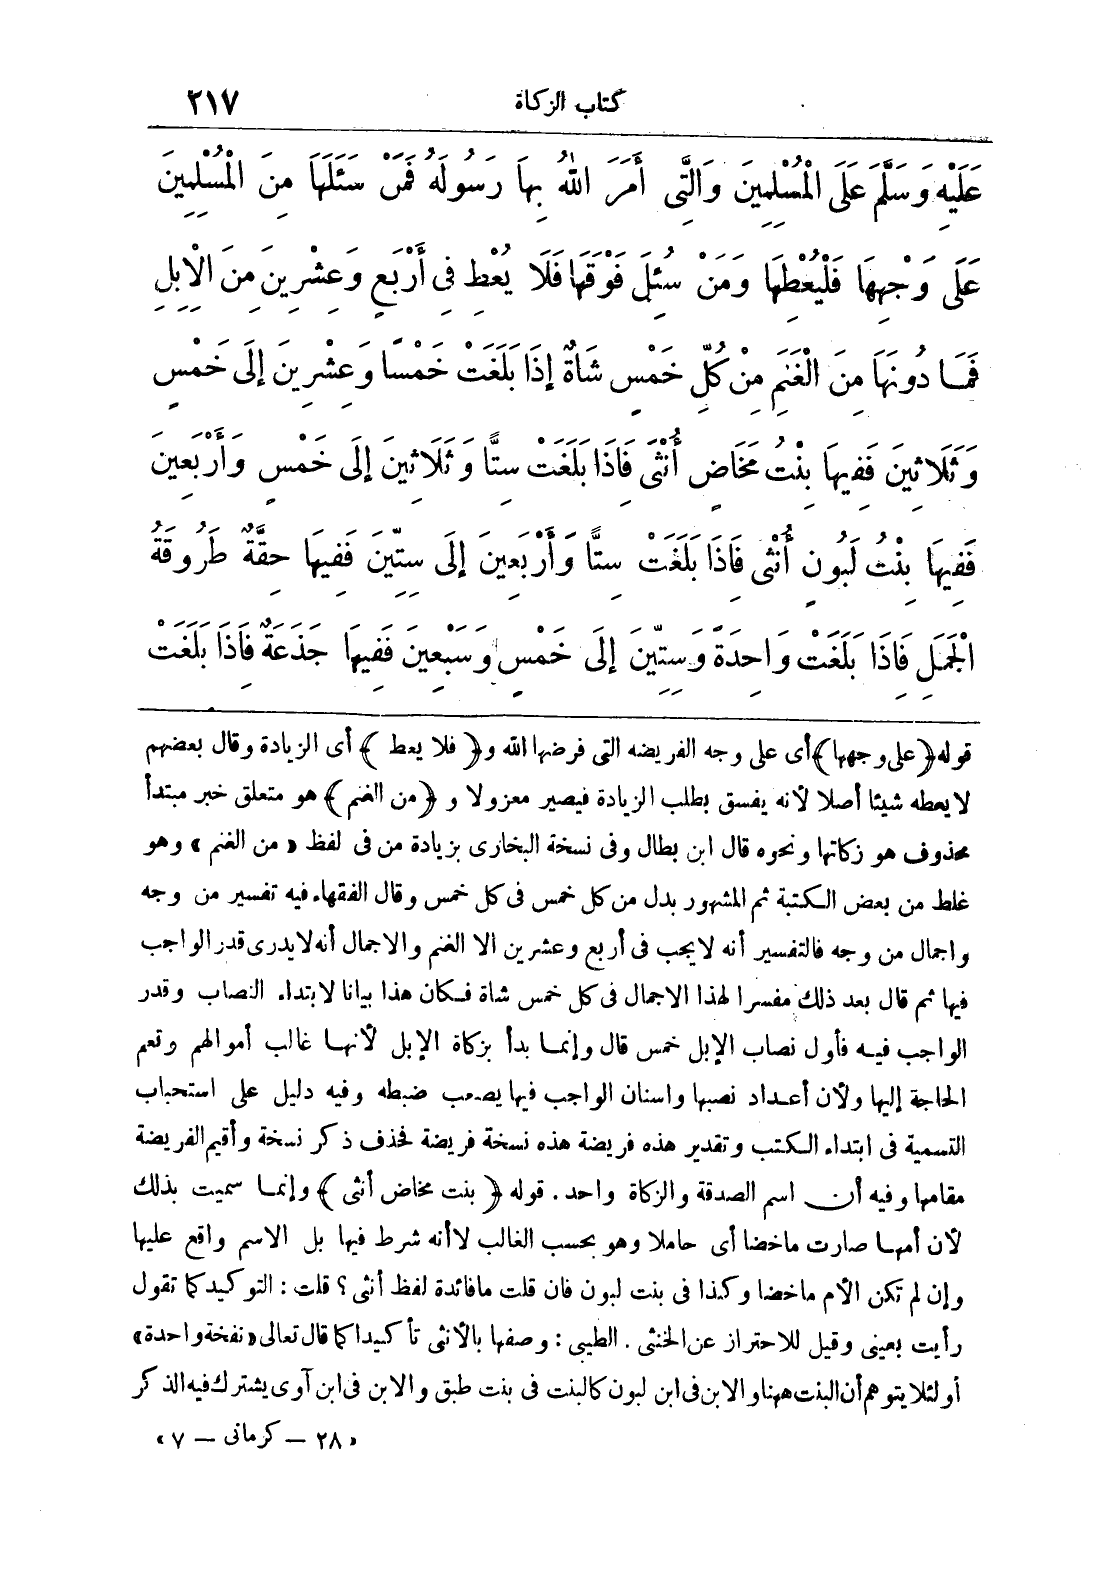 كتاب الزكاة ٢١٧
عَلَيْهِ وَسَلَّمَ عَلَى الْمُسْلِمِينَ وَالَّتِى أَمَرَ اللهُ بِهَا رَسُولَهُ فَمَنْ سُئِلَهَا مِنَ الْمُسْلِمِينَ
عَلَى وَجْهِهَا فَلْيُعْطِهَا وَمَنْ سُئِلَ فَوْقَهَا فَلَا يُعْطِ فِى أَرْبَعٍ وَعِشْرِينَ مِنَ الْإِبِلِ
فَمَا دُونَهَا مِنَ الْغَنَمِ مِنْ كُلِّ خَمْسٍ شَاةٌ إِذَا بَلَغَتْ خَمْسًا وَعِشْرِينَ إِلَى خَمْسٍ
وَثَلَاثِينَ فَفِيهَا بِنْتُ مَخَاضٍ أُنْثَى فَاِذَا بَلَغَتْ سِتًّا وَثَلَاثِينَ إِلَى خَمْسٍ وَأَرْبَعِينَ
فَفِيهَا بِنْتُ لَبُونٍ أُنْثَى فَاِذَا بَلَغَتْ سِتًّا وَأَرْبَعِينَ إِلَى سِتِّينَ فَفِيهَا حِقَّةٌ طَرُوقَةُ
الْجَمَلِ فَاِذَا بَلَغَتْ وَاحِدَةً وَسِتِّينَ إِلَى خَمْسٍ وَسَبْعِينَ فَفِيهَا جَذَعَةٌ فَاِذَا بَلَغَتْ
قوله ﴿على وجهها﴾ أى على وجه الفريضه التى فرضها الله و﴿فلا يعط﴾ أى الزيادة وقال بعضهم
لا يعطه شيئا أصلا لأنه يفسق بطلب الزيادة فيصير معزولا و ﴿من الغنم﴾ هو متعلق خبر مبتدأ
محذوف هو زكاتها ونحوه قال ابن بطال وفى نسخة البخارى بزيادة من فى لفظ «من الغنم» وهو
غلط من بعض الكتبة ثم المشهور بدل من كل خمس فى كل خمس وقال الفقهاء فيه تفسير من وجه
واجمال من وجه فالتفسير أنه لا يجب فى أربع وعشرين الا الغنم والاجمال أنه لا يدرى قدر الواجب
فيها ثم قال بعد ذلك مفسرا لهذا الاجمال فى كل خمس شاة فكان هذا بيانا لابتداء النصاب وقدر
الواجب فيه فأول نصاب الإبل خمس قال وإنما بدأ بزكاة الإبل لأنها غالب أموالهم وتعم
الحاجة إليها ولأن أعداد نصبها واسنان الواجب فيها يصعب ضبطه وفيه دليل على استحباب
التسمية فى ابتداء الكتب وتقدير هذه فريضة هذه نسخة فريضة فحذف ذكر نسخة وأقيم الفريضة
مقامها وفيه أن اسم الصدقة والزكاة واحد. قوله ﴿بنت مخاض أنثى﴾ وإنما سميت بذلك
لأن أمها صارت ماخضا أى حاملا وهو بحسب الغالب لا أنه شرط فيها بل الاسم واقع عليها
وإن لم تكن الأم ماخضا وكذا فى بنت لبون فان قلت ما فائدة لفظ أنثى؟ قلت: التوكيد كما تقول
رأيت بعينى وقيل للاحتراز عن الخنثى. الطيبى: وصفها بالأنثى تأكيدا كما قال تعالى «نفخة واحدة»
أو لئلا يتوهم أن البنت ههنا والابن فى ابن لبون كالبنت فى بنت طبق والابن فى ابن آوى يشترك فيه الذكر
«٢٨ – كرمانى – ٧»